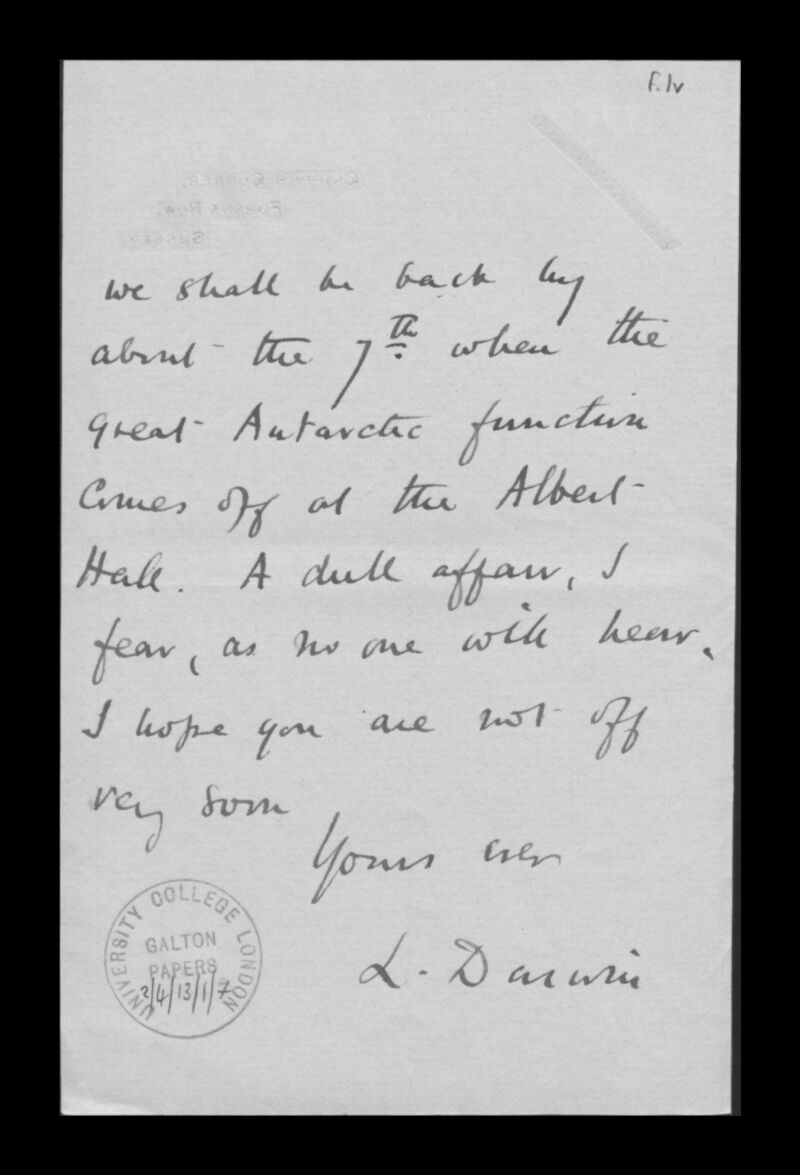 f.1v
CRIPPS'S CORNER,
FOREST ROW,
SUSSEX
we shall be back by
about the 7th when the
great Antarctic function
comes off at the Albert
Hall. A dull affair, I
fear, as no one will hear.
I hope you are not off
very soon
Yours ever
L. Darwin
UNIVERSITY COLLEGE LONDON
GALTON
PAPERS
2/4/13/1/7